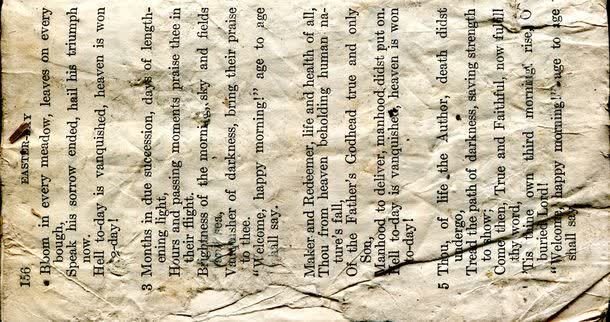 156 EASTER-DAY
Bloom in every meadow, leaves on every
bough,
Speak his sorrow ended, hail his triumph
now.
Hell to-day is vanquished, heaven is won
to-day!
3 Months in due succession, days of length-
ening light,
Hours and passing moments praise thee in
their flight.
Brightness of the morning, sky and fields
sea,
Vanquisher of darkness, bring their praise
to thee.
"Welcome, happy morning!" age to age
shall say.
Maker and Redeemer, life and health of all,
Thou from heaven beholding human na-
ture's fall,
Of the Father's Godhead true and only
Son,
Manhood to deliver, manhood didst put on.
Hell to-day is vanquished, heaven is won
to-day!
5 Thou, of life the Author, death didst
undergo,
Tread the path of darkness, saving strength
to show;
Come then, True and Faithful, now fulfill
thy word,
'Tis thine own third morning! rise, O
buried Lord!
"Welcome, happy morning!" age to age
shall say.